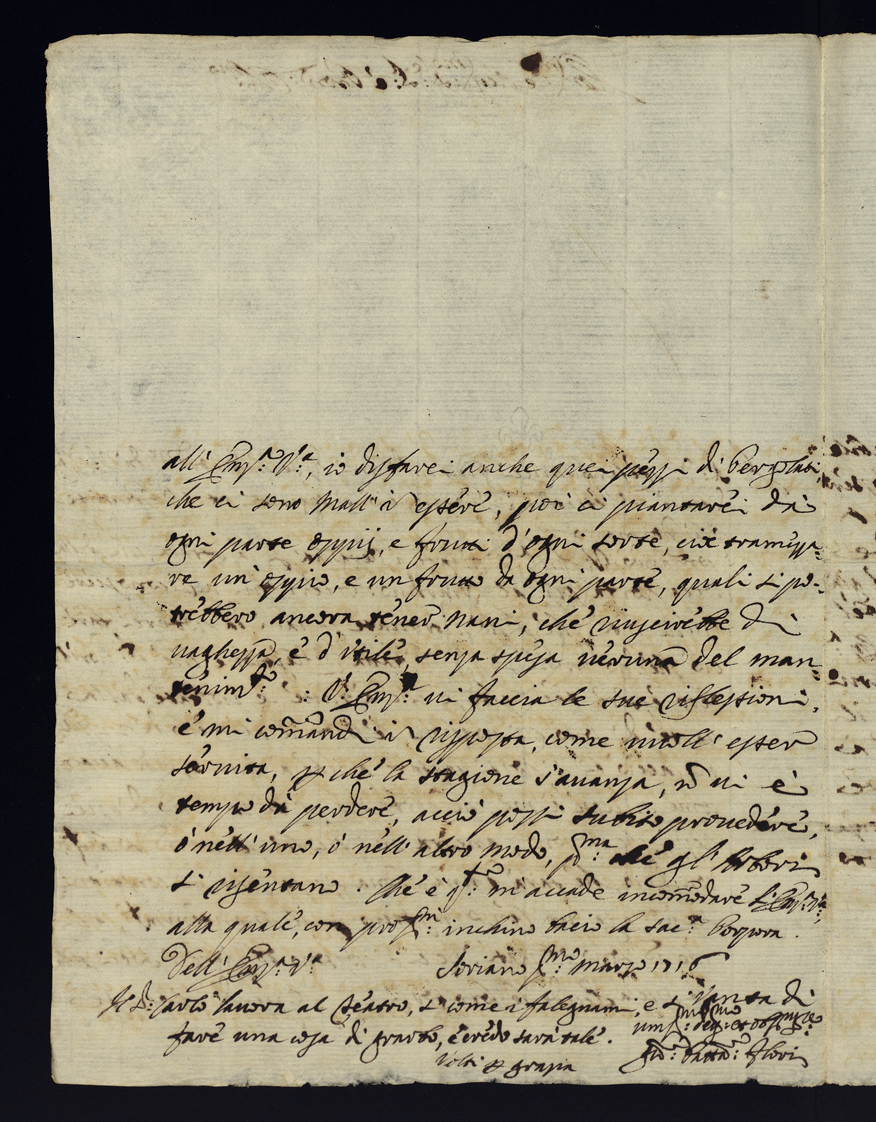 all' Em.ª V.ª, io disfarei anche quei pezzi di bergolati
che ci sono mall' in essere, poi ci piantarei da
ogni parte oppij, e frutti d'ogni sorte, cioè tramezza=
re un' oppio, e un frutto da ogni parte, quali si po=
trebbero ancora tener nani, che riuscirebbe di
vaghezza, e d'utile, senza spesa veruna del man=
tenim.to : V. Em.ª vi faccia le sue riflessioni,
e mi comandi in risposta, come vuoll' esser
servita, perchè la stagione s'avanza, nõ vi è
tempo da perdere, acciò possi subito provedere,
ò nell' uno, ò nell' altro modo, p.ma che gl' Arbori
si risentano. Che è q.to m'accade incommodare l'Em.ª V.ª,
alla quale, con prof.mo inchino bacio la sac.ª Porpora.
Dell' Em.ª V.ª
Soriano p.mo Marzo 1716
Il S.r Carlo lavora al Teatro, si come i falegnami, e si vanta di
fare una cosa di garbo, e credo sarà tale.
Volti per grazia
Um.mo Dev.mo et Obl.mo Ser.re
Gio: Batta: Flori